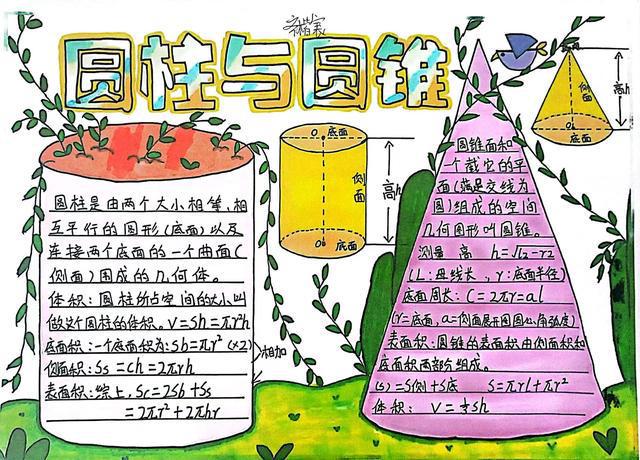 圆柱与圆锥
圆柱是由两个大小相等,相
互平行的圆形(底面)以及
连接两个底面的一个曲面(
侧面)围成的几何体。
体积:圆柱所占空间的大小叫
做这个圆柱的体积。V=sh=πr²h
底面积:一个底面积为:sb=πr² (×2)
侧面积:Ss=ch=2πrh
相加
表面积:综上,Sc=2Sb+Ss
=2πr²+2πhr
O 底面
侧面
高h
O 底面
圆锥面和
一个截它的平
面(满足交线为
圆)组成的空间
几何图形叫圆锥。
测量 高 h=√l2-r2
(L:母线长,r:底面半径)
底面周长:C=2πr=al
(r=底面,a=侧面展开图圆心角弧度)
表面积:圆锥的表面积由侧面积和
底面积两部分组成。
(s)=S侧+S底 S=πrl+πr²
体积: V=⅓sh
侧面
高h
O
底面